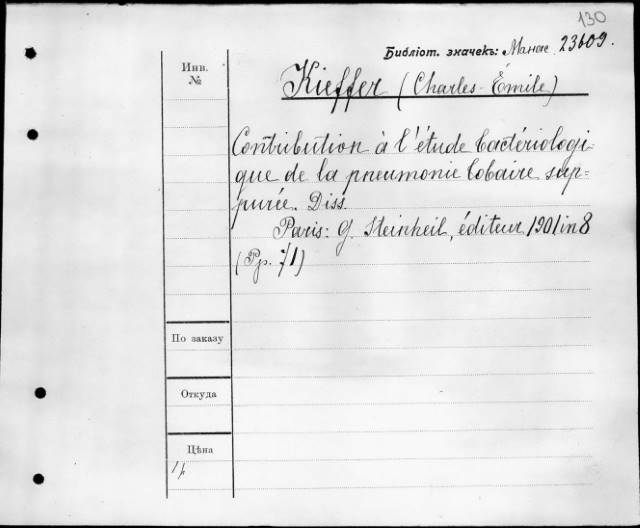 130
Библіот. значекъ: 23609.
Инв.
№
Kieffer (Charles-Émile)
Contribution à l'étude bactériologi-
que de la pneumonie lobaire sup-
purée. Diss.
Paris: G. Steinheil, éditeur, 1901 in 8
(Pp. 71)
По заказу
Откуда
Цѣна
1 р